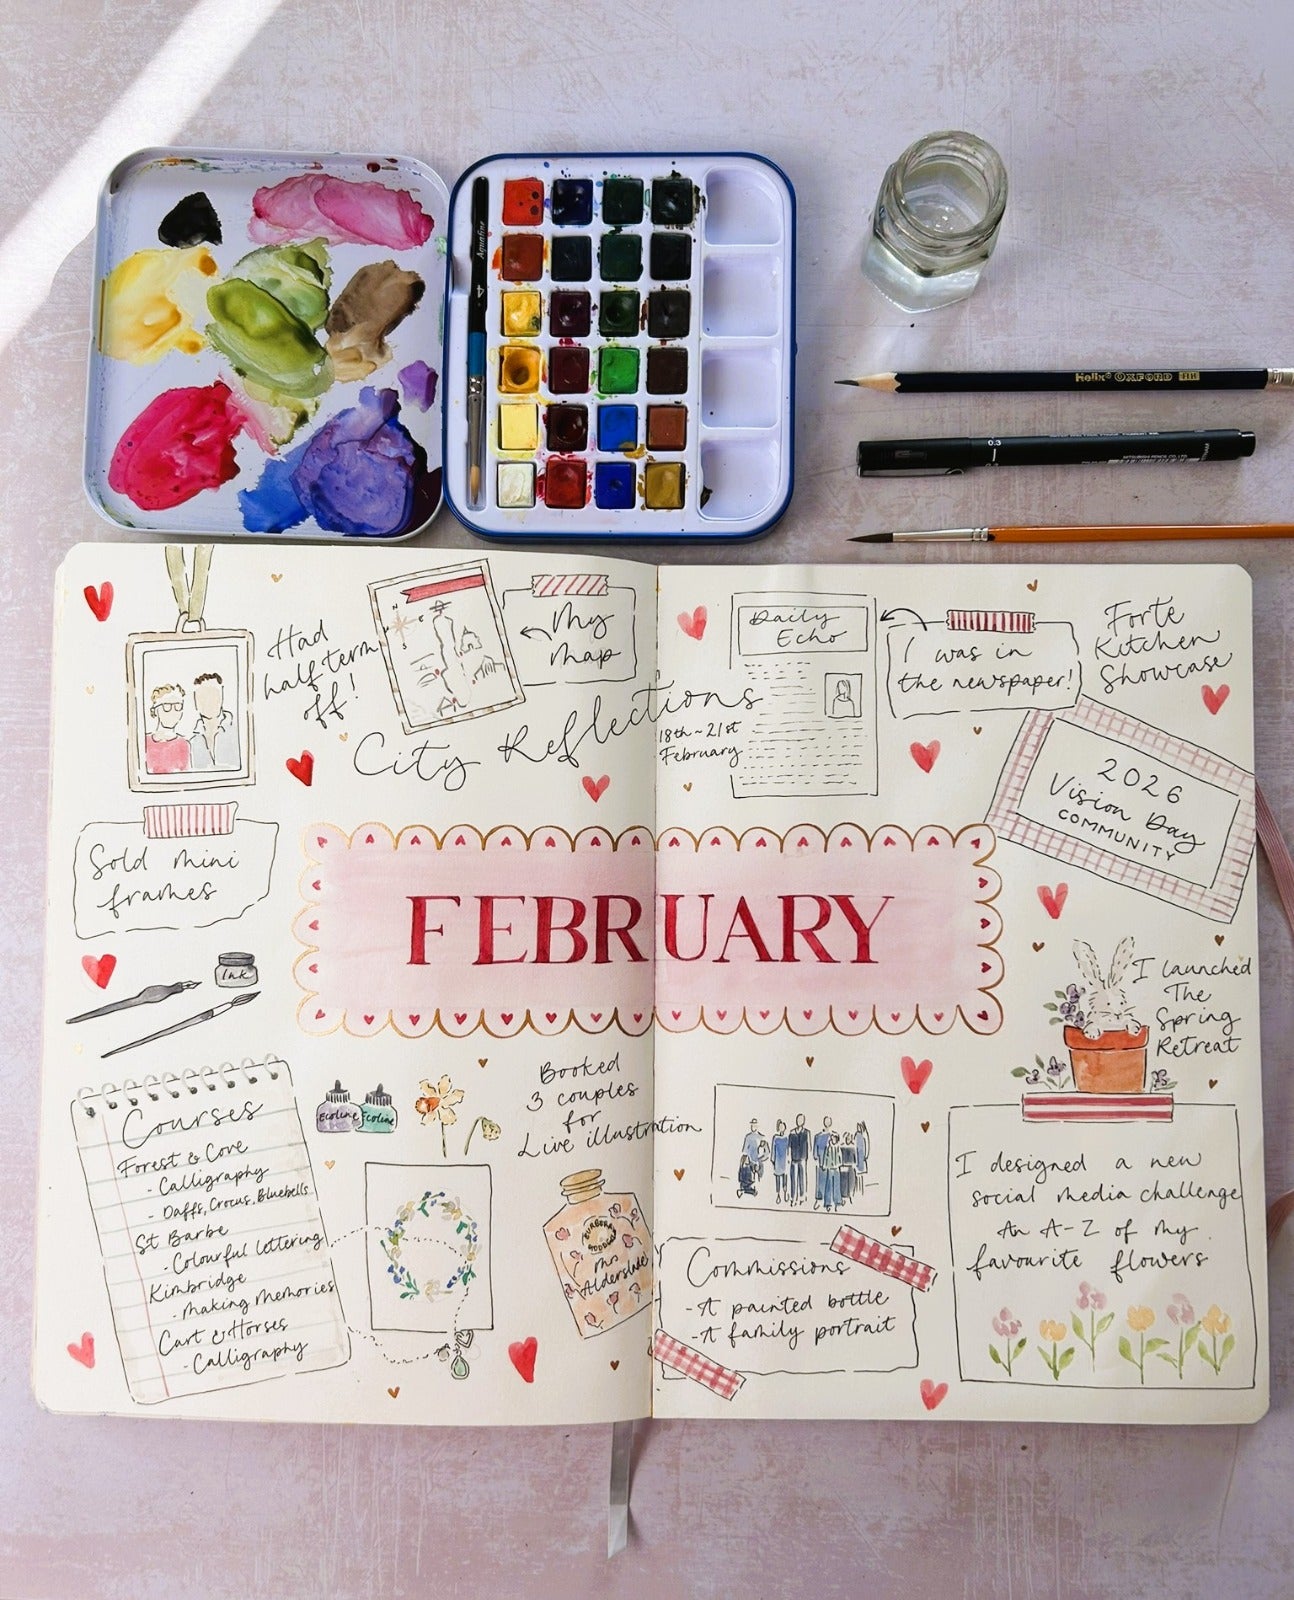 Aquafine
4
Helix OXFORD HB
0.3
MITSUBISHI PENCIL CO., LTD
Had
half term
off!
N
E
S
My
map
City Reflections
18th ~ 21st
February
Daily
Echo
I was in
the newspaper!
Forte
Kitchen
Showcase
2026
Vision Day
COMMUNITY
Sold mini
frames
Ink
FEBRUARY
I launched
The
Spring
Retreat
Courses
Forest & Cove
- Calligraphy
- Daffs, Crocus, Bluebells
St Barbe
- Colourful lettering
Kimbridge
- Making Memories
Cart & Horses
- Calligraphy
Ecoline
Ecoline
Booked
3 couples
for
Live illustration
BURBERRY
GODDESS
Mrs
Alderslade
Commissions
- A painted bottle
- A family portrait
I designed a new
social media challenge
An A-Z of my
favourite flowers